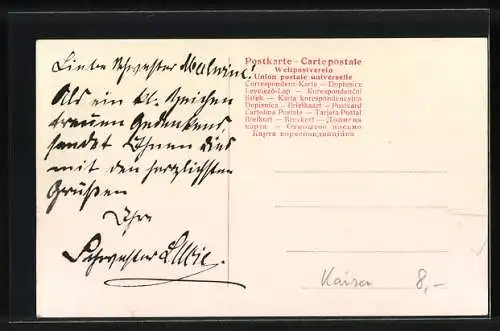 Liebe Schwester Malwine!
Als ein kl. Zeichen
treuen Gedenkens,
sendet Ihnen dies
mit den herzlichsten
Grüßen
Ihre
Schwester Lucie.
Postkarte – Carte postale
Weltpostverein
Union postale universelle
Correspondenz-Karte – Dopisnice
Levelező-Lap – Korespondenční
lístek – Karta korespondencyjna
Dopisnica – Briefkaart – Postcard
Cartolina Postale – Tarjeta Postal
Brefkort – Brevkort – Дописна
карта – Открытое письмо
Карта корреспонденційна
Kaiser 8,-